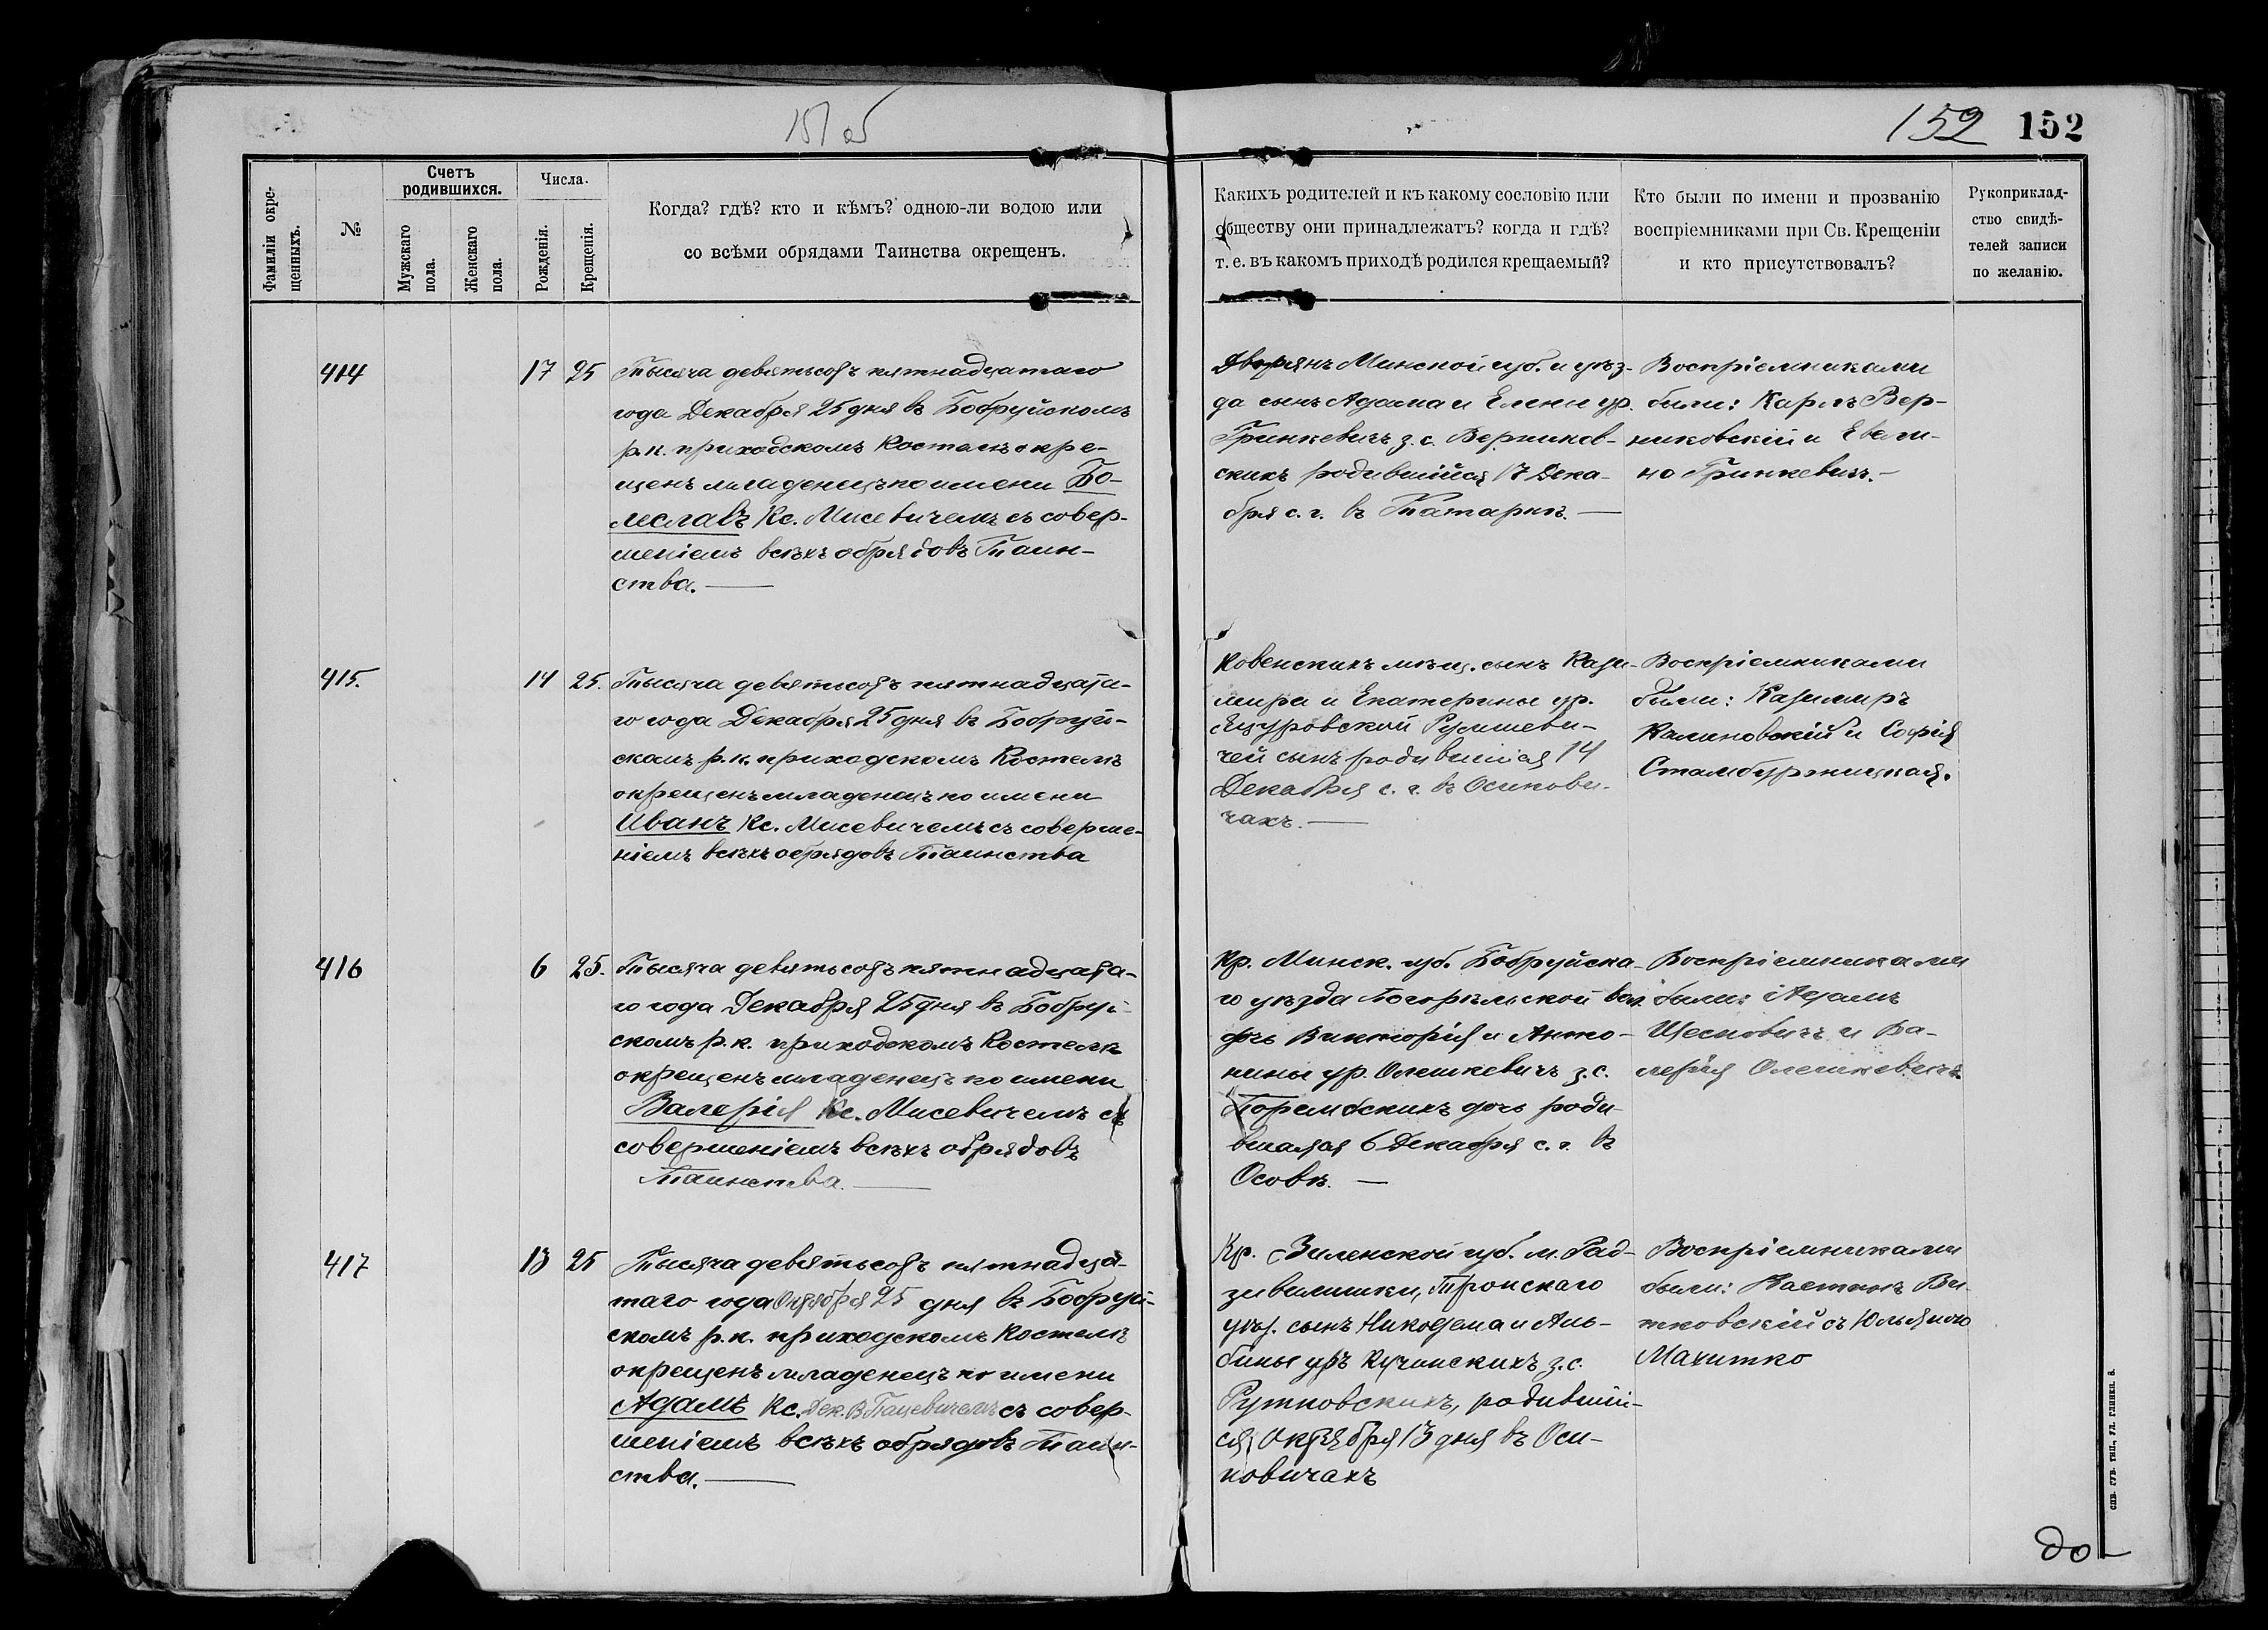 151 об
152 152
Фамиліи окре-
щенныхъ.
№
Счетъ
родившихся.
Мужскаго
пола.
Женскаго
пола.
Числа.
Рожденія.
Крещенія.
Когда? гдѣ? кто и кѣмъ? одною-ли водою или
со всѣми обрядами Таинства окрещенъ.
Какихъ родителей и къ какому сословію или
обществу они принадлежатъ? когда и гдѣ?
т. е. въ какомъ приходѣ родился крещаемый?
Кто были по имени и прозванію
воспріемниками при Св. Крещеніи
и кто присутствовалъ?
Рукоприклад-
ство свидѣ-
телей записи
по желанію.
414
17 25
Тысяча девятьсотъ пятнадцатаго
года Декабря 25 дня въ Бобруйскомъ
р.к. приходскомъ Костелѣ окре-
щенъ младенецъ по имени Бо-
леславъ Кс. Мисевичемъ съ совер-
шеніемъ всѣхъ обрядовъ Таин-
ства.
Дворянъ Минской губ. и уѣз-
да сынъ Адама и Елены ур.
Гринкевичъ з. с. Верников-
скихъ родившійся 17 Дека-
бря с. г. въ Татаркѣ.
Воспріемниками
были: Карлъ Вер-
никовскій и Евели-
на Гринкевичъ.
415.
14 25.
Тысяча девятьсотъ пятнадцата-
го года Декабря 25 дня въ Бобруй-
скомъ р.к. приходскомъ Костелѣ
окрещенъ младенецъ по имени
Иванъ Кс. Мисевичемъ съ соверше-
ніемъ всѣхъ обрядовъ Таинства
Ковенскихъ мѣщ. сынъ Кази-
мира и Екатерины ур.
Румшеви-
чей сынъ родившійся 14
Декабря с. г. въ Осипови-
чахъ.
Воспріемниками
были: Казимиръ
Калиновскій и Софія

416
6 25.
Тысяча девятьсотъ пятнадцата-
го года Декабря 25 дня въ Бобруй-
скомъ р.к. приходскомъ Костелѣ
окрещенъ младенецъ по имени
Валерія Кс. Мисевичемъ съ
совершеніемъ всѣхъ обрядовъ
Таинства.
Кр. Минск. губ. Бобруйска-
го уѣзда Погорѣльской вол.
дочь Викторія и Анто-
нины ур. Олешкевичъ з. с.
Поремскихъ дочь роди-
вшаяся 6 Декабря с. г. въ
Осовѣ.
Воспріемниками
были: Адамъ
Щесновичъ и Ва-
лерія Олешкевичъ.
417
13 25
Тысяча девятьсотъ пятнадца-
таго года Октября 25 дня въ Бобруй-
скомъ р.к. приходскомъ Костелѣ
окрещенъ младенецъ по имени
Адамъ Кс. Дек. В. Пацевичемъ съ совер-
шеніемъ всѣхъ обрядовъ Таин-
ства.
Кр. Виленской губ. м. Рад-
зивилишки, Трокскаго
уѣз. сынъ Никодема и Аль-
бины уръ Кучинскихъ з. с.
Рутковскихъ, родившій-
ся Октября 13 дня въ Оси-
повичахъ
Воспріемниками
были: Ви-
тковскій съ Юльяною
Махитко
до-
СПБ. ГУБ. ТИП., УЛ. ГЛИНКИ, 8.